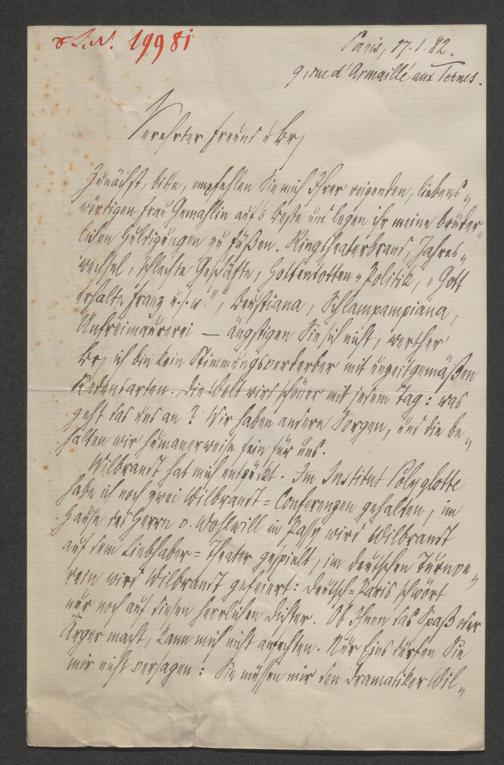 I.N. 19981
Paris, 17.1.82.
9 rue d'Armaillé aux Ternes.
Verehrter Freund u Br,
Zunächst, bitte, empfehlen Sie mich Ihrer reizenden, liebens-
würdigen Frau Gemahlin auf's Beste und legen ihr meine brüder-
lichen Huldigungen zu Füßen. Ringtheaterbrand, Jahres-
wechsel, schlechte Geschäfte, Hottentotten-Politik, "Gott
erhalte Franz u.s.w.", Schlampampiana,
Unfreimaurerei — ängstigen Sie sich nicht, werther
Br, ich bin kein Stimmungsverderber mit unzeitgemäßen
Redensarten. Die Welt wird schöner mit jedem Tag: was
geht das uns an? Wir haben andere Sorgen, und die be-
halten wir humanerweise fein für uns.
Wilbrandt hat mich entzückt. Im Institut Polyglotte
habe ich noch zwei Wilbrandt-Conferenzen gehalten, im
Hause des Herrn v. Wohlwill in Passy wird Wilbrandt
auf dem Liebhaber-Theater gespielt, im deutschen Turnve-
rein wird Wilbrandt gefeiert: Deutsch-Paris schwört
nur noch auf diesen herrlichen Dichter. Ob Ihnen das Spaß oder
Ärger macht, kann mich nicht anfechten. Nur Eins dürfen Sie
mir nicht versagen: Sie müssen mir den Dramatiker Wil-